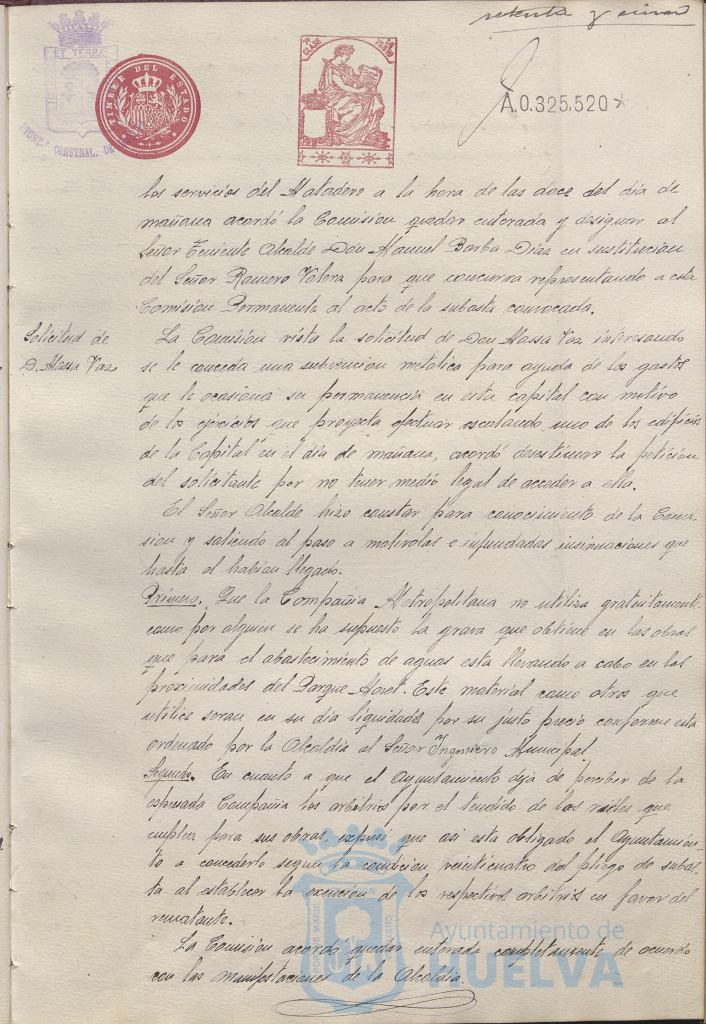 setenta y cinco
ET TERRÆ
TIMBRE DEL ESTADO
CLASE
AYUNT.º CONSTNAL. DE
A.0.325.520
los servicios del Matadero a la hora de las doce del dia de
mañana acordó la Comision quedar enterada y designar al
Señor Teniente Alcalde Don Manuel Barba Diaz en sustitucion
del Señor Romero Valera para que concurra representando a esta
Comisión Permanente al acto de la subasta convocada.
Solicitud de
D. Massa Vaz
La Comisión vista la solicitud de Don Massa Vaz interesando
se le conceda una subvencion metalica para ayuda de los gastos
que le ocasiona su permanencia en esta capital con motivo
de los ejercicios que proyecta efectuar escalando uno de los edificios
de la Capital en el dia de mañana, acordó desestimar la peticion
del solicitante por no tener medio legal de acceder a ella.
El Señor Alcalde hizo constar para conocimiento de la Comi-
sion y saliendo al paso a malevolas e infundadas insinuaciones que
hasta el habian llegado.
Primero. Que la Compañia Metropolitana no utiliza gratuitamente
como por alguien se ha supuesto la grava que obtiene en las obras
que para el abastecimiento de aguas esta llevando a cabo en las
proximidades del Parque Moret. Este material como otros que
utilice seran en su dia liquidados por su justo precio conforme esta
ordenado por la Alcaldia al Señor Ingeniero Municipal.
Segundo. En cuanto a que el Ayuntamiento deja de percibir de la
expresada Compañia los arbitrios por el tendido de los railes que
emplea para sus obras, expuso que asi esta obligado el Ayuntamien-
to a concederlo segun la condición veinticuatro del pliego de subas-
ta al establecer la excencion de los respectivos arbitrios en favor del
rematante.
La Comision acordó quedar enterada completamente de acuerdo
con las manifestaciones de la Alcaldia.
Ayuntamiento de
HUELVA